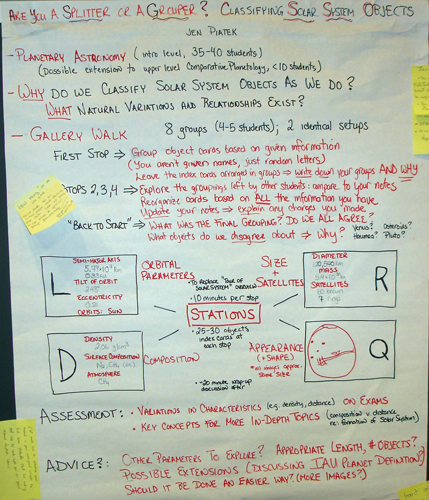 ARE YOU A SPLITTER OR A GROUPER? CLASSIFYING SOLAR SYSTEM OBJECTS
JEN PIATEK
- PLANETARY ASTRONOMY (intro level, 35-40 students)
(possible extension to upper level Comparative Planetology, <10 students)
- WHY DO WE CLASSIFY SOLAR SYSTEM OBJECTS AS WE DO?
WHAT NATURAL VARIATIONS AND RELATIONSHIPS EXIST?
- GALLERY WALK 8 groups (4-5 students); 2 identical setups
FIRST STOP ⇒ Group object cards based on given information
(You aren't given names, just random letters)
Leave the index cards arranged in groups ⇒ write down your groups AND WHY
STOPS 2,3,4 ⇒ Explore the groupings left by other students: compare to your notes
Reorganize cards based on ALL the information you have
Update your notes ⇒ explain any changes you made
"BACK TO START" ⇒ WHAT WAS THE FINAL GROUPING? DO WE ALL AGREE?
What objects do we disagree about ⇒ Why?
Venus? Asteroids?
Haumea? Pluto?
L
SEMI-MAJOR AXIS
TILT OF ORBIT
ECCENTRICITY
ORBITS: SUN
ORBITAL
PARAMETERS
• TO REPLACE "TOUR OF
SOLAR SYSTEM" OVERVIEW
• 10 minutes per stop
SIZE
+
SATELLITES
DIAMETER
MASS
SATELLITES
R
STATIONS
D
DENSITY
SURFACE COMPOSITION
ATMOSPHERE
CH4
COMPOSITION
• 25-30 objects
index cards at
each stop
• ~20 minute wrap-up
discussion after
APPEARANCE
(+SHAPE)
* all images approx.
same size
Q
ASSESSMENT: • VARIATIONS IN CHARACTERISTICS (e.g. density, distance) ON EXAMS
• KEY CONCEPTS FOR MORE IN-DEPTH TOPICS (composition v. distance
re: formation of Solar System)
ADVICE?: OTHER PARAMETERS TO EXPLORE? APPROPRIATE LENGTH, # OBJECTS?
POSSIBLE EXTENSIONS (DISCUSSING IAU PLANET DEFINITION?)
SHOULD IT BE DONE AN EASIER WAY? (MORE IMAGES?)